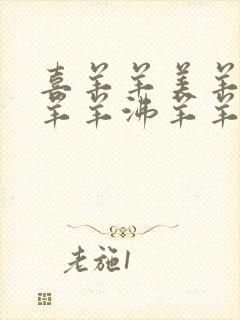 喜羊羊美羊
羊羊沸羊羊
老施1